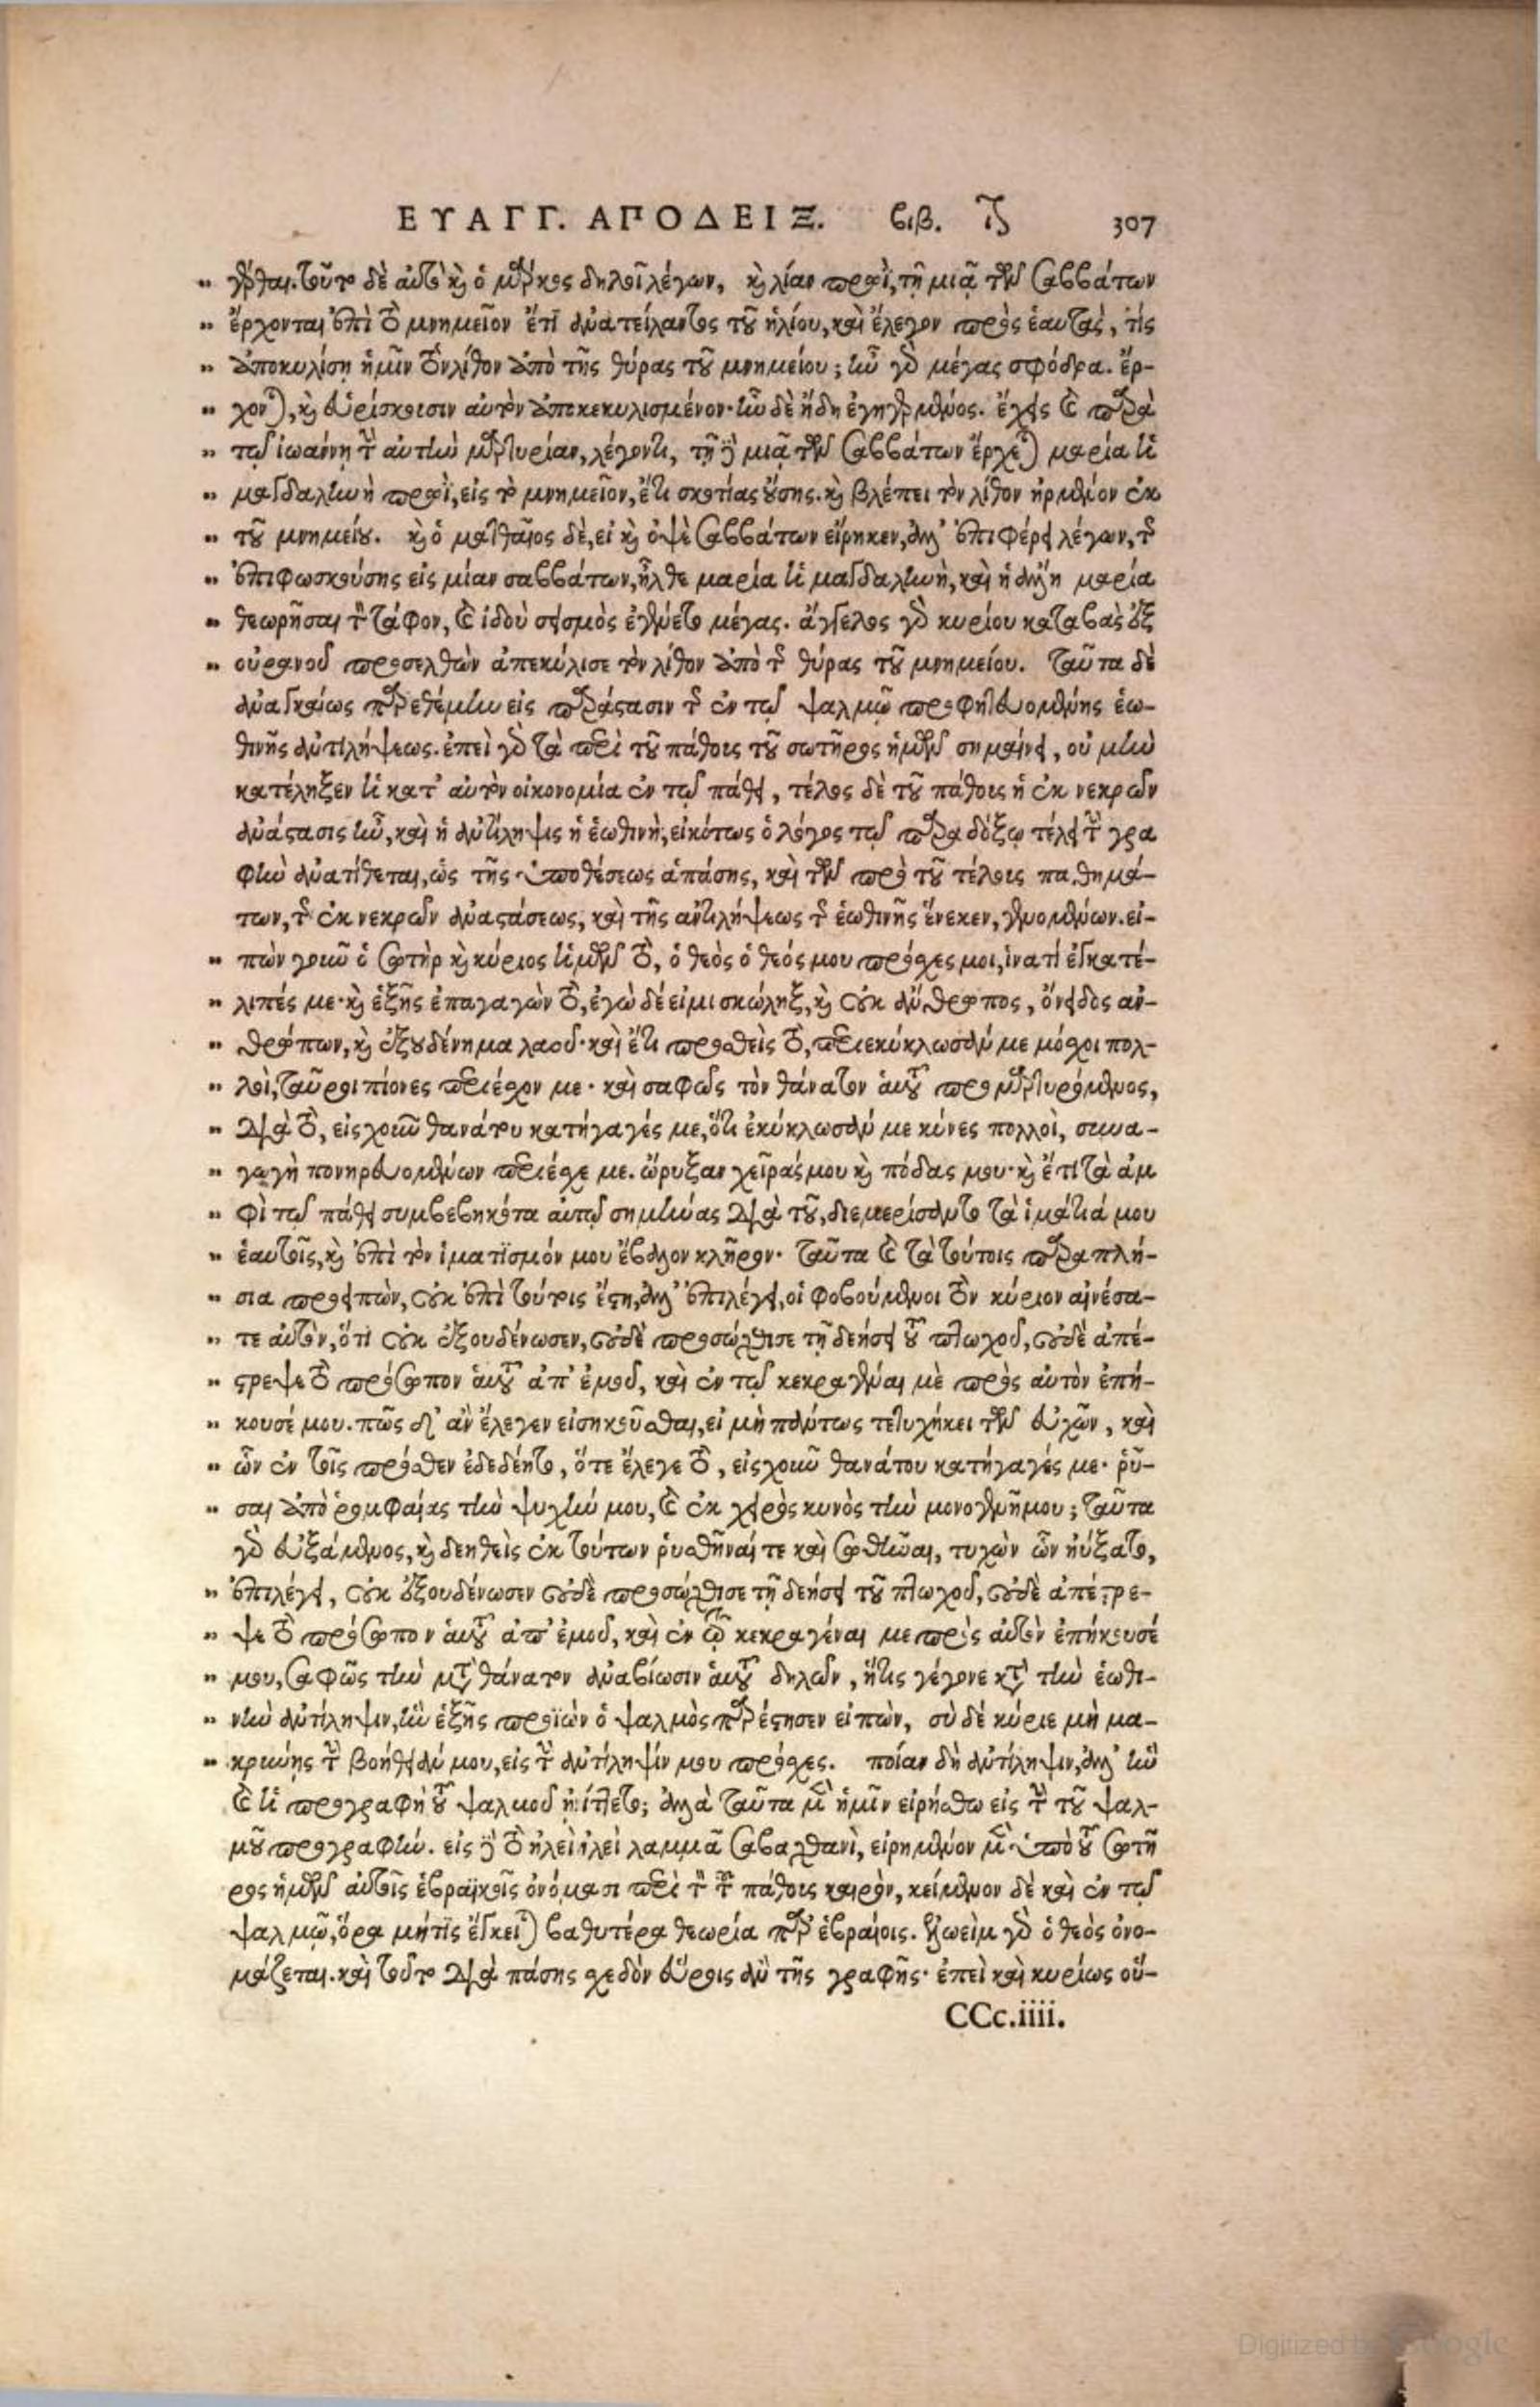 ΕΥΑΓΓ. ΑΠΟΔΕΙΞ. βιβ. ιζ 307
" γέρθαι. τοῦτο δὲ αὐτὸ καὶ ὁ μάρκος δηλοῖ λέγων, καὶ λίαν πρωῒ, τῇ μιᾷ τῶν σαββάτων
" ἔρχονται ἐπὶ τὸ μνημεῖον ἔτι ἀνατείλαντος τοῦ ἡλίου, καὶ ἔλεγον πρὸς ἑαυτὰς, τίς
" ἀποκυλίσῃ ἡμῖν τὸν λίθον ἀπὸ τῆς θύρας τοῦ μνημείου; ἦν γὰρ μέγας σφόδρα. ἔρ-
" χονται, καὶ εὑρίσκουσιν αὐτὸν ἀποκεκυλισμένον. ἦν δὲ ἤδη ἐγηγερμένος. ἔχεις καὶ παρὰ
" τῷ ἰωάννῃ τὴν αὐτὴν μαρτυρίαν, λέγοντι, τῇ δὲ μιᾷ τῶν σαββάτων ἔρχεται μαρία ἡ
" μαγδαληνὴ πρωῒ, εἰς τὸ μνημεῖον, ἔτι σκοτίας οὔσης. καὶ βλέπει τὸν λίθον ἠρμένον ἐκ
" τοῦ μνημείου. καὶ ὁ ματθαῖος δὲ, εἰ καὶ ὀψὲ σαββάτων εἴρηκεν, ἀλλ' ἐπιφέρει λέγων, τῇ
" ἐπιφωσκούσης εἰς μίαν σαββάτων, ἦλθε μαρία ἡ μαγδαληνὴ, καὶ ἡ ἄλλη μαρία
" θεωρῆσαι τὸν τάφον, καὶ ἰδοὺ σεισμὸς ἐγένετο μέγας. ἄγγελος γὰρ κυρίου καταβὰς ἐξ
" οὐρανοῦ προσελθὼν ἀπεκύλισε τὸν λίθον ἀπὸ τῆς θύρας τοῦ μνημείου. ταῦτα δὲ
ἀναγκαίως παρεθέμην εἰς παράστασιν τῆς ἐν τῷ ψαλμῷ προφητευομένης ἑω-
θινῆς ἀντιλήψεως. ἐπεὶ γὰρ τὰ περὶ τοῦ πάθους τοῦ σωτῆρος ἡμῶν σημαίνει, οὐ μὴν
κατέληξεν ἡ κατ' αὐτὸν οἰκονομία ἐν τῷ πάθει, τέλος δὲ τοῦ πάθους ἡ ἐκ νεκρῶν
ἀνάστασις ἦν, καὶ ἡ ἀντίληψις ἡ ἑωθινὴ, εἰκότως ὁ λόγος τῷ παραδόξῳ τέλει τὴν γρα
φὴν ἀνατίθεται, ὡς τῆς ὑποθέσεως ἁπάσης, καὶ τῶν πρὸ τοῦ τέλους παθημά-
των, τῆς ἐκ νεκρῶν ἀναστάσεως, καὶ τῆς ἀντιλήψεως τῆς ἑωθινῆς ἕνεκεν, γενομένων. εἰ-
" πὼν γοῦν ὁ σωτὴρ καὶ κύριος ἡμῶν τὸ, ὁ θεὸς ὁ θεός μου πρόσχες μοι, ἱνατί ἐγκατέ-
" λιπές με. καὶ ἑξῆς ἐπαγαγὼν τὸ, ἐγὼ δέ εἰμι σκώληξ, καὶ οὐκ ἄνθρωπος, ὄνειδος ἀν-
" θρώπων, καὶ ἐξουδένημα λαοῦ. καὶ ἔτι προσθεὶς τὸ, περιεκύκλωσάν με μόσχοι πολ-
" λοὶ, ταῦροι πίονες περιέσχον με. καὶ σαφῶς τὸν θάνατον αὑτοῦ προμαρτυρόμενος,
" διὰ τὸ, εἰς χοῦν θανάτου κατήγαγές με, ὅτι ἐκύκλωσάν με κύνες πολλοὶ, συνα-
" γωγὴ πονηρευομένων περιέσχε με. ὤρυξαν χεῖράς μου καὶ πόδας μου. καὶ ἔτι τὰ ἀμ
" φὶ τῷ πάθει συμβεβηκότα αὐτῷ σημήνας διὰ τοῦ, διεμερίσαντο τὰ ἱμάτιά μου
" ἑαυτοῖς, καὶ ἐπὶ τὸν ἱματισμόν μου ἔβαλον κλῆρον. ταῦτα καὶ τὰ τούτοις παραπλή-
" σια προειπὼν, οὐκ ἐπὶ τούτοις ἔστη, ἀλλ' ἐπιλέγει, οἱ φοβούμενοι τὸν κύριον αἰνέσα-
" τε αὐτὸν, ὅτι οὐκ ἐξουδένωσεν, οὐδὲ προσώχθισε τῇ δεήσει τοῦ πτωχοῦ, οὐδὲ ἀπέ-
" στρεψε τὸ πρόσωπον αὑτοῦ ἀπ' ἐμοῦ, καὶ ἐν τῷ κεκραγέναι μὲ πρὸς αὐτὸν ἐπή-
" κουσέ μου. πῶς δ' ἂν ἔλεγεν εἰσηκοῦσθαι, εἰ μὴ πάντως τετυχήκει τῶν εὐχῶν, καὶ
" ὧν ἐν τοῖς πρόσθεν ἐδεδέητο, ὅτε ἔλεγε τὸ, εἰς χοῦν θανάτου κατήγαγές με. ῥῦ-
" σαι ἀπὸ ῥομφαίας τὴν ψυχήν μου, καὶ ἐκ χειρὸς κυνὸς τὴν μονογενῆ μου; ταῦτα
γὰρ εὐξάμενος, καὶ δεηθεὶς ἐκ τούτων ῥυσθῆναί τε καὶ σωθῆναι, τυχὼν ὧν ηὔξατο,
" ἐπιλέγει, οὐκ ἐξουδένωσεν οὐδὲ προσώχθισε τῇ δεήσει τοῦ πτωχοῦ, οὐδὲ ἀπέστρε-
" ψε τὸ πρόσωπον αὑτοῦ ἀπ' ἐμοῦ, καὶ ἐν τῷ κεκραγέναι με πρὸς αὐτὸν ἐπήκουσέ
" μου, σαφῶς τὴν μετὰ θάνατον ἀναβίωσιν αὑτοῦ δηλῶν, ἥτις γέγονε κατὰ τὴν ἑωθι-
" νὴν ἀντίληψιν, ἣν ἑξῆς προϊὼν ὁ ψαλμὸς παρέστησεν εἰπὼν, σὺ δέ κύριε μὴ μα-
" κρύνῃς τὴν βοήθειάν μου, εἰς τὴν ἀντίληψίν μου πρόσχες. ποίαν δὴ ἀντίληψιν, ἀλλ' ἣν
καὶ ἡ προγραφὴ τοῦ ψαλμοῦ ᾐνίττετο; ἀλλὰ ταῦτα μὲν ἡμῖν εἰρήσθω εἰς τὴν τοῦ ψαλ-
μοῦ προγραφήν. εἰς δὲ τὸ ἠλεὶ ἠλεὶ λαμμᾶ σαβαχθανὶ, εἰρημένον μὲν ὑπὸ τοῦ σωτῆ
ρος ἡμῶν αὐτοῖς ἑβραϊκοῖς ὀνόμασι περὶ τὸν τοῦ πάθους καιρὸν, κείμενον δὲ καὶ ἐν τῷ
ψαλμῷ, ὅρα μήτις ἔγκειται βαθυτέρα θεωρία παρ' ἑβραίοις. ἐλωεὶμ γὰρ ὁ θεὸς ὀνο-
μάζεται. καὶ τοῦτο διὰ πάσης σχεδὸν εὕροις ἂν τῆς γραφῆς. ἐπεὶ καὶ κυρίως οὕ-
CCc.iiii.
Digitized by Google